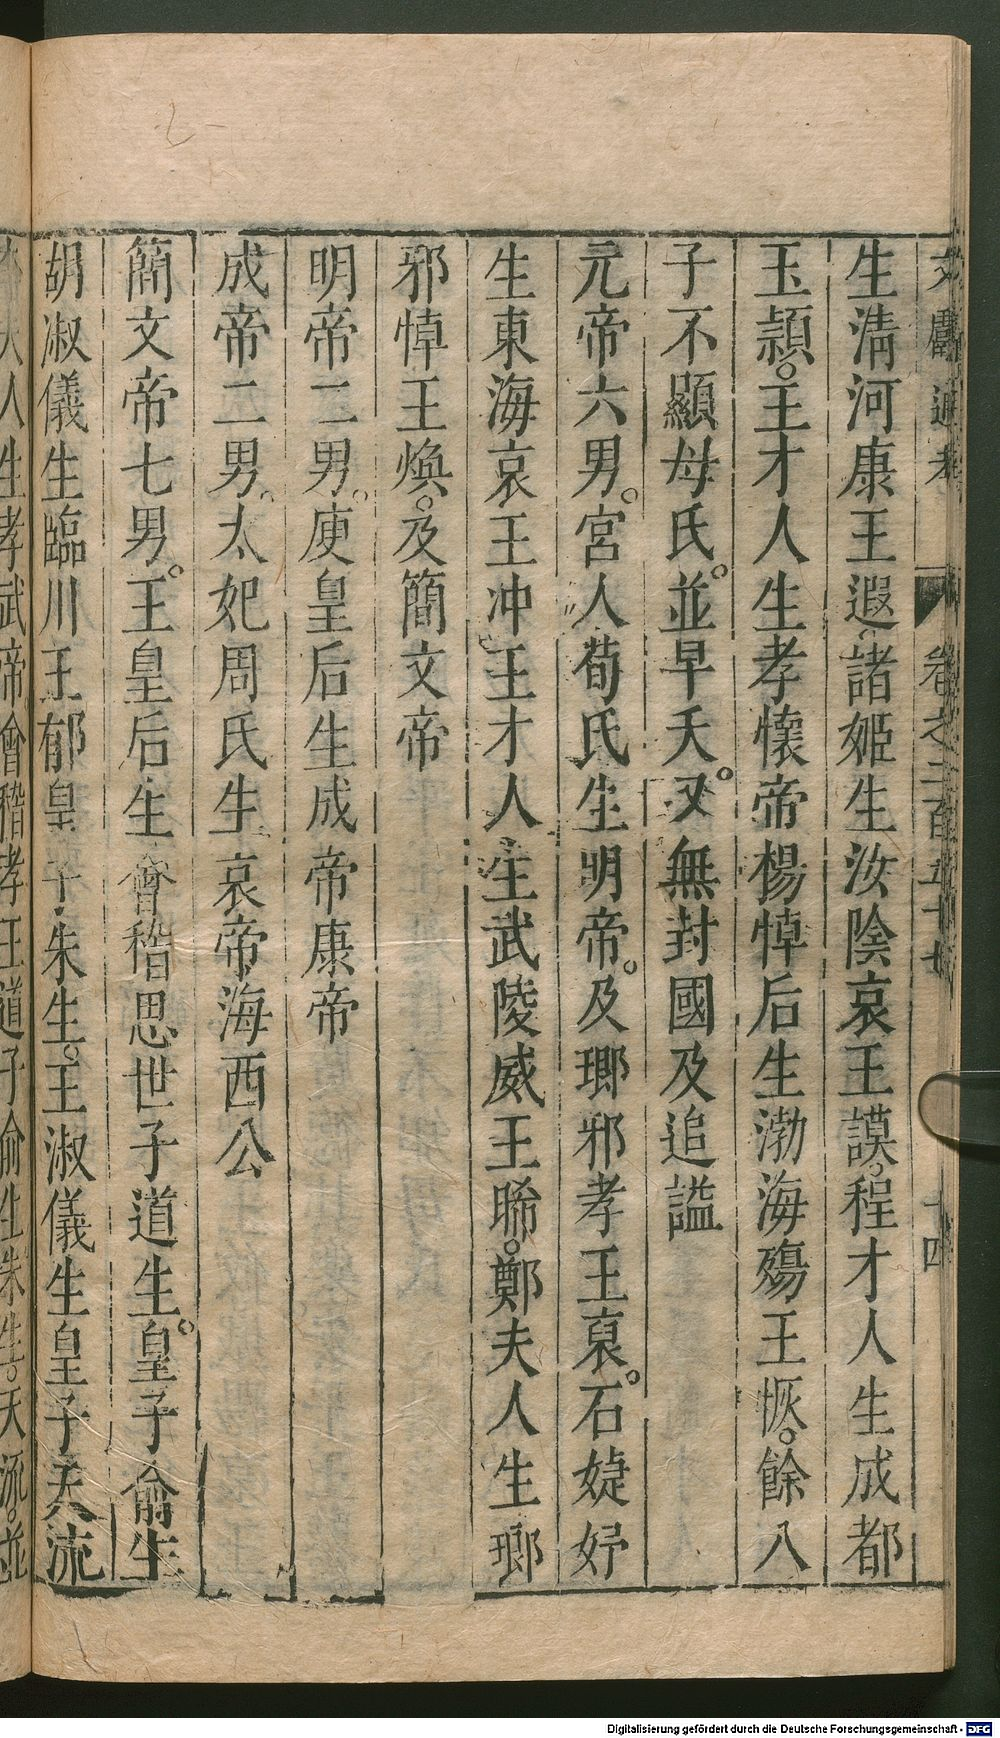 文獻通考 卷之二百五十七 十四
生清河康王遐諸姬生汝陰哀王謨程才人生成都
王頴。王才人生孝懷帝楊悼后生渤海殤王恢。餘八
子不顯母氏。並早夭。又無封國及追謚
元帝六男。宮人荀氏生明帝。及瑯邪孝王裒。石婕妤
生東海哀王冲王才人生武陵威王晞。鄭夫人生瑯
邪悼王煥。及簡文帝
明帝二男。庾皇后生成帝康帝
成帝二男。太妃周氏生哀帝海西公
簡文帝七男。王皇后生會稽思世子道生。皇子俞生
胡淑儀生臨川王郁皇子朱生。王淑儀生皇子天流
夫人生孝武帝會稽孝王道子俞生朱生。天流。並
Digitalisierung gefördert durch die Deutsche Forschungsgemeinschaft - DFG